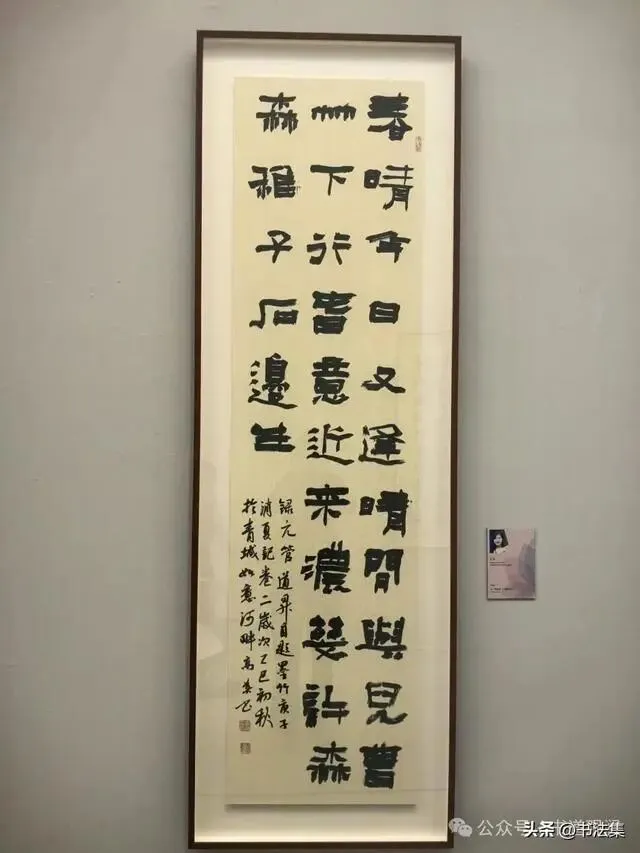 春晴今日又逢晴閒與兒曹
竹下行春意近来濃幾許森
森稚子石邊生
録元管道昇自题墨竹庚子
消夏記卷二歲次乙巳初秋
於青城如意河畔高
公众号
头条@书法集